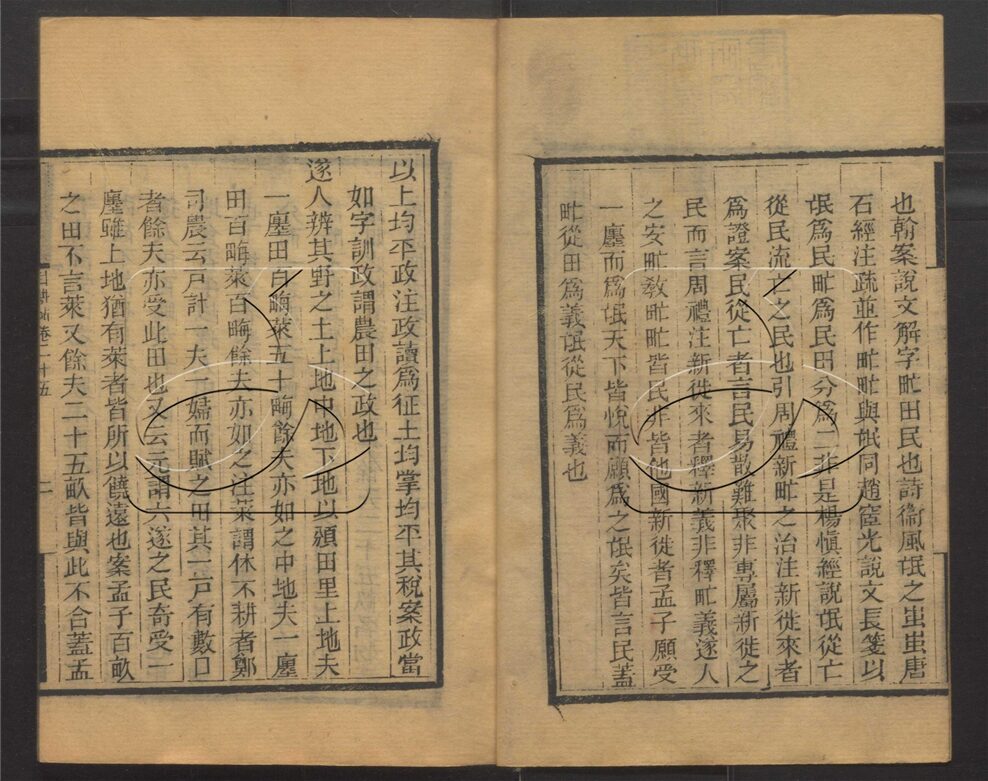 也翰案說文解字甿田民也詩衞風氓之蚩蚩唐
石經注疏並作甿甿與氓同趙宧光說文長箋以
氓爲民甿爲民田分爲二非是楊愼經說氓從亡
從民流亡之民也引周禮新甿之治注新徙來者
爲證案民從亡者言民易散難聚非專屬新徙之
民而言周禮注新徙來者釋新義非釋甿義遂人
之安甿敎甿甿皆民非皆他國新徙者孟子願受
一廛而爲氓天下皆悅而願爲之氓矣皆言民蓋
甿從田爲義氓從民爲義也
以上均平政注政讀爲征土均掌均平其稅案政當
如字訓政謂農田之政也
遂人辨其野之土上地中地下地以頒田里上地夫
一廛田百畮萊五十畮餘夫亦如之中地夫一廛
田百畮萊百畮餘夫亦如之注萊謂休不耕者鄭
司農云戸計一夫一婦而賦之田其一戸有數口
者餘夫亦受此田也又云元謂六遂之民奇受一
廛雖上地猶有萊者皆所以饒遠也案孟子百畝
之田不言萊又餘夫二十五畝皆與此不合蓋孟
目耕帖卷二十五
二